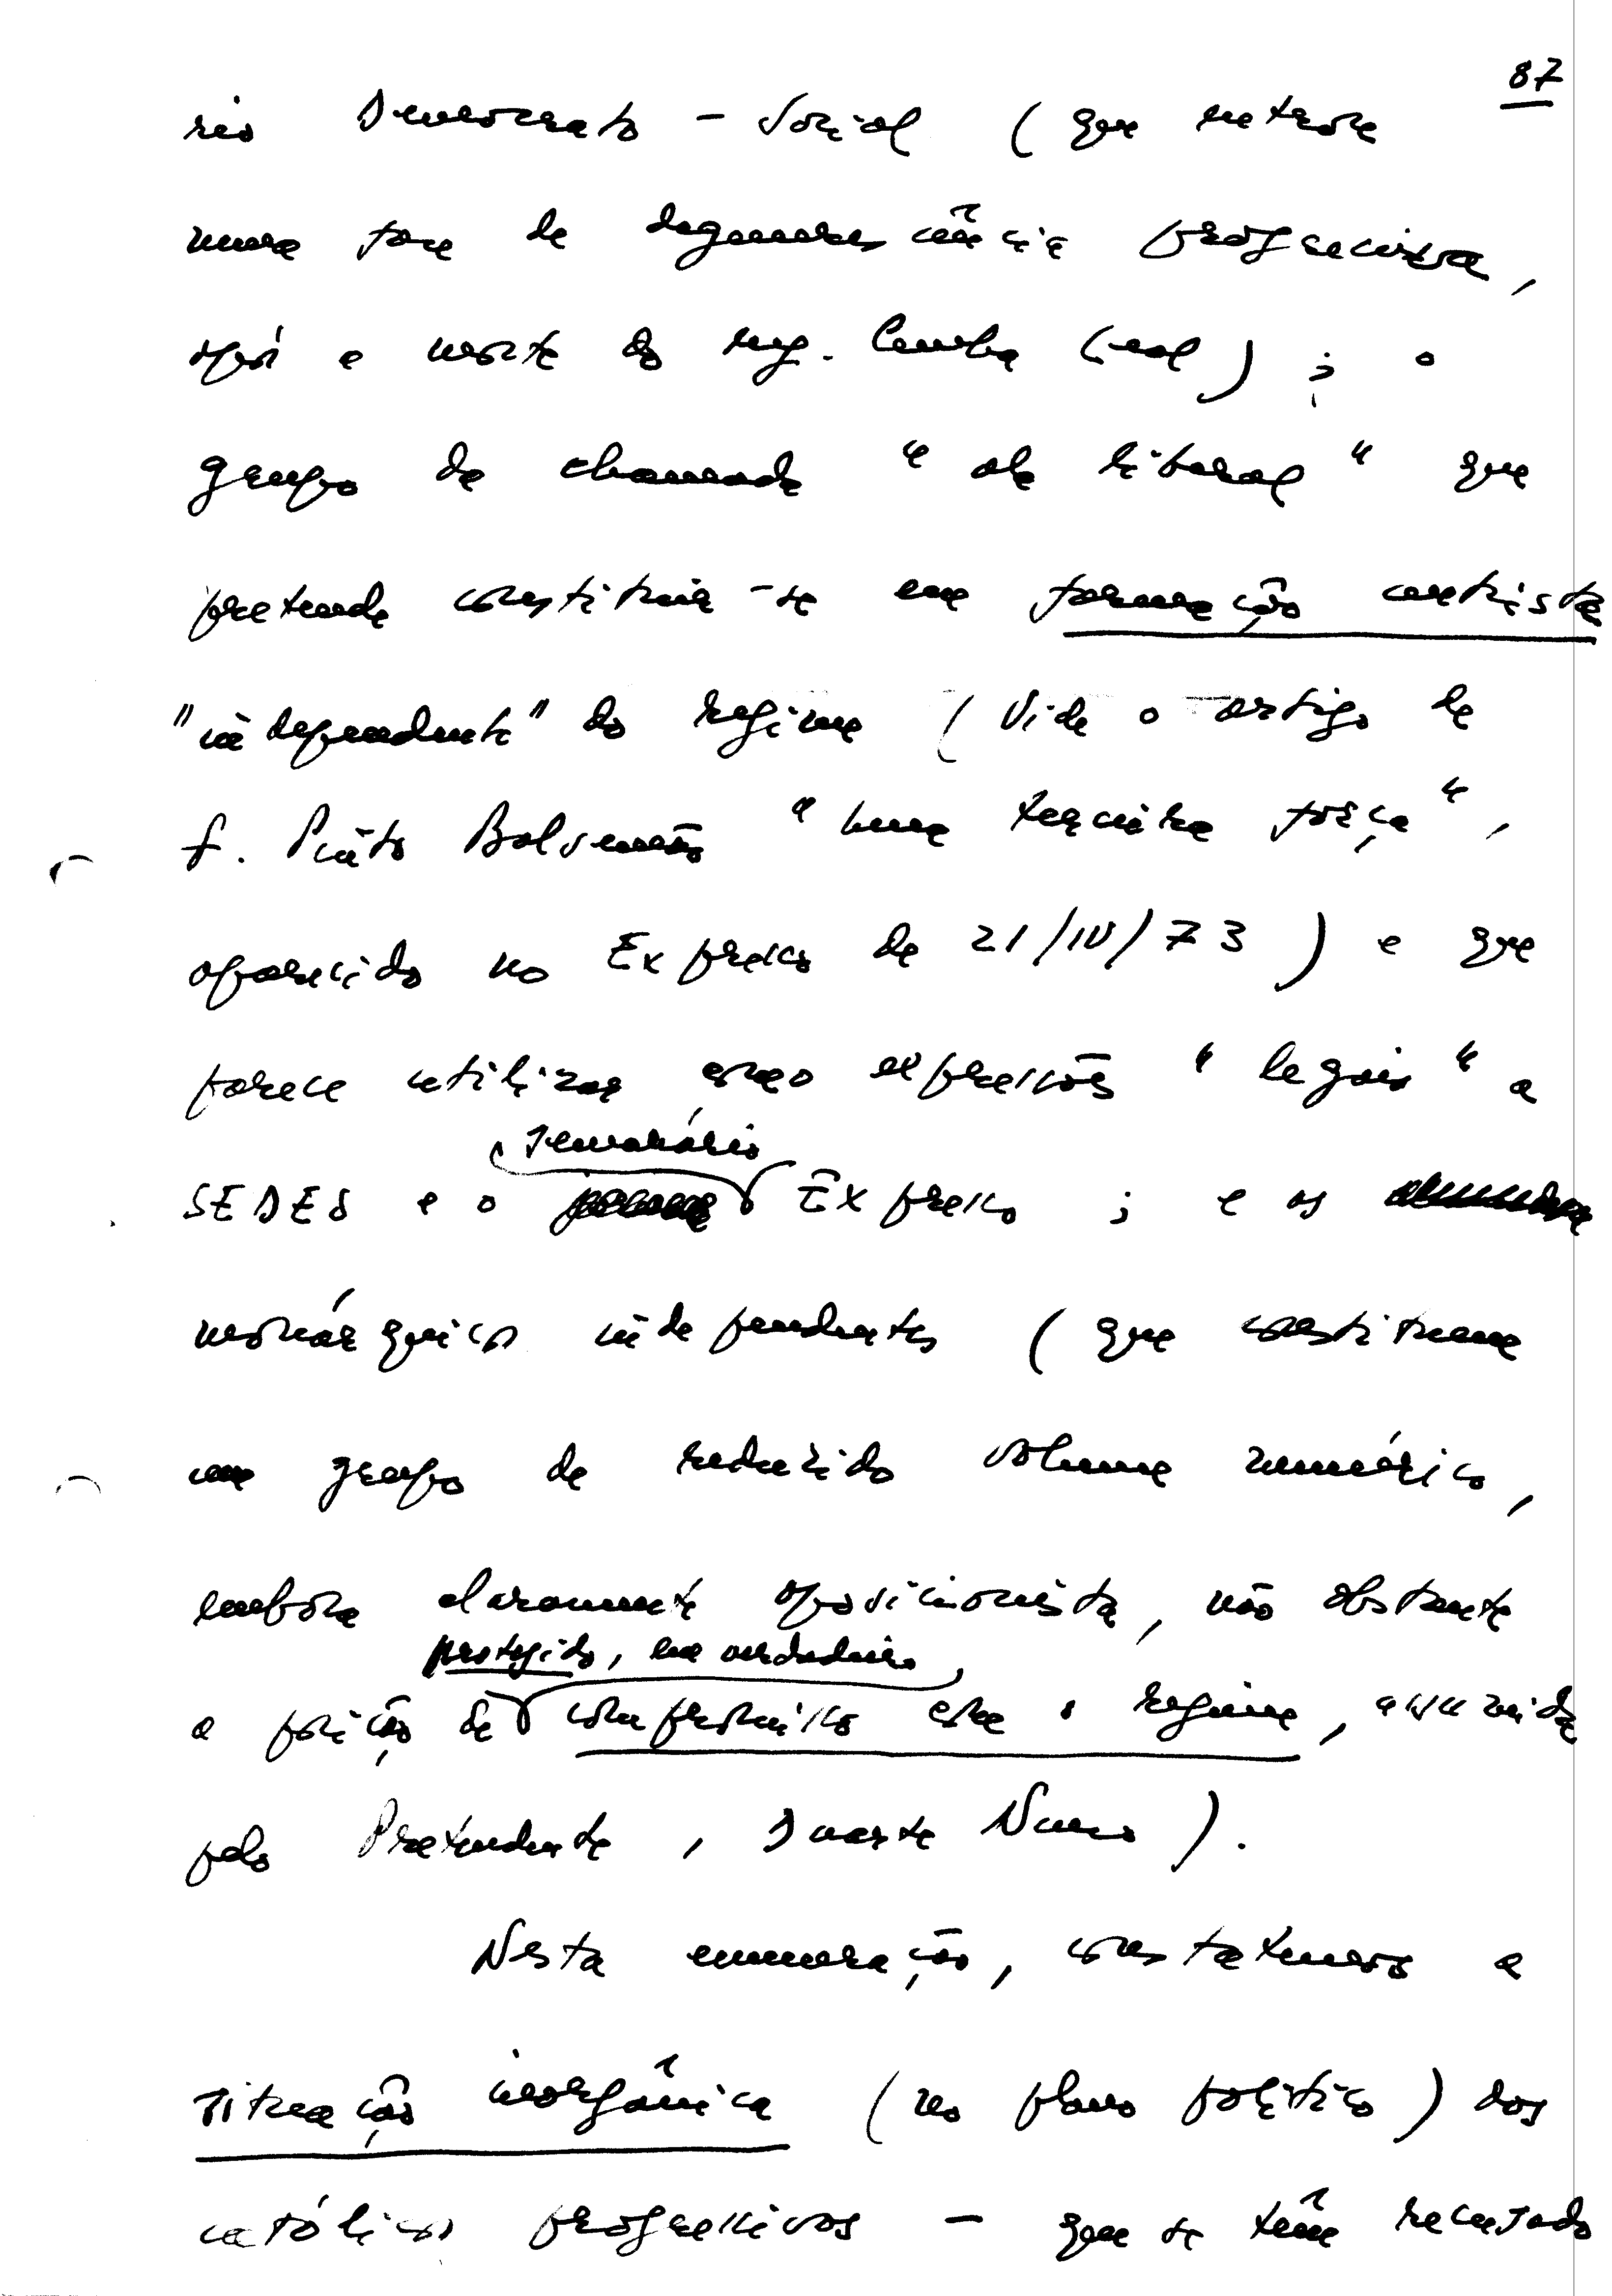 87
rio Democrata-Social (que entrou
numa fase de degenerescência progressiva,
após a morte do eng. Cunha Leal); o
grupo da chamada "ala liberal" que
pretende constituir-se em formação centrista
"independente" do regime (Vide o artigo de
F. Pinto Balsemão "Uma terceira força",
aparecido no Expresso de 21/IV/73) e que
parece utilizar como expressões "legais" a
semanário
SEDES e o Expresso; e os
monárquicos independentes (que constituem
um grupo de reduzido volume numérico,
embora claramente oposicionista, não obstante
protegido, em verdadeiro,
a posição de compromisso com o regime, assumida
pelo Pretendente, Duarte Nuno).
Nesta enumeração, constatamos a
situação inorgânica (no plano político) dos
católicos progressivos - que se têm recusado